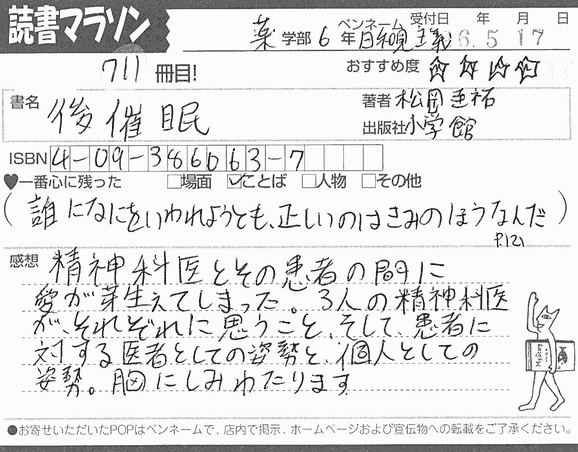 読書マラソン
薬 学部 6 年 ペンネーム 日和見主義 受付日 年 月 日 6.5.17
711 冊目!
おすすめ度 ☆☆☆☆
書名 後催眠
著者 松岡圭祐
出版社 小学館
ISBN 4-09-386063-7
♥一番心に残った □場面 ☑ことば □人物 □その他
(誰になにをいわれようとも、正しいのはきみのほうなんだ)
P121
感想 精神科医とその患者の間に
愛が芽生えてしまった。3人の精神科医
が、それぞれに思うこと、そして、患者に
対する医者としての姿勢と、個人としての
姿勢。胸にしみわたります
●お寄せいただいたPOPはペンネームで、店内で掲示、ホームページおよび宣伝物への転載をご了承ください。